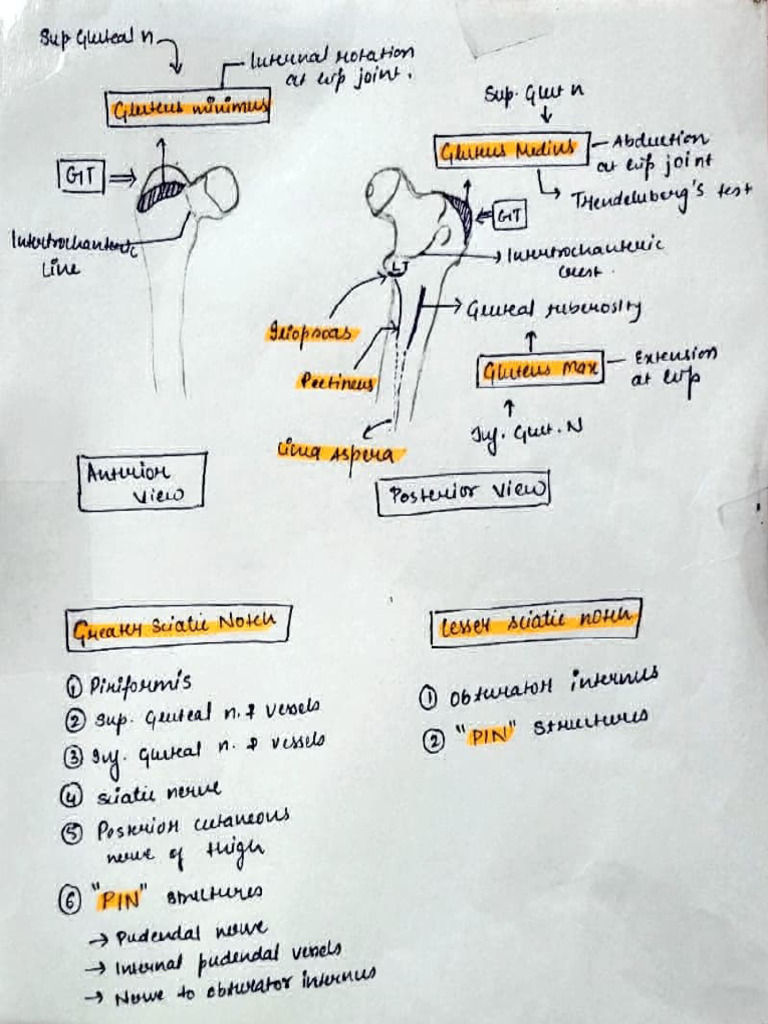 Sup Gluteal n
Internal rotation
at hip joint.
Gluteus minimus
GT
Intertrochanteric
Line
Sup. Glut n
Gluteus Medius
Abduction
at hip joint
Trendelenberg's test
GT
Intertrochanteric
crest.
LT
Gluteal tuberosity
Iliopsoas
Pectineus
Gluteus Max
Extension
at hip
Inf. Glut. N
Linea Aspera
Anterior
View
Posterior View
Greater Sciatic Notch
① Piriformis
② Sup. Gluteal n. & vessels
③ Inf. Gluteal n. & vessels
④ Sciatic nerve
⑤ Posterior cutaneous
nerve of thigh
⑥ "PIN" structures
→ Pudendal nerve
→ Internal pudendal vessels
→ Nerve to obturator internus
Lesser sciatic notch
① Obturator internus
② "PIN" structures